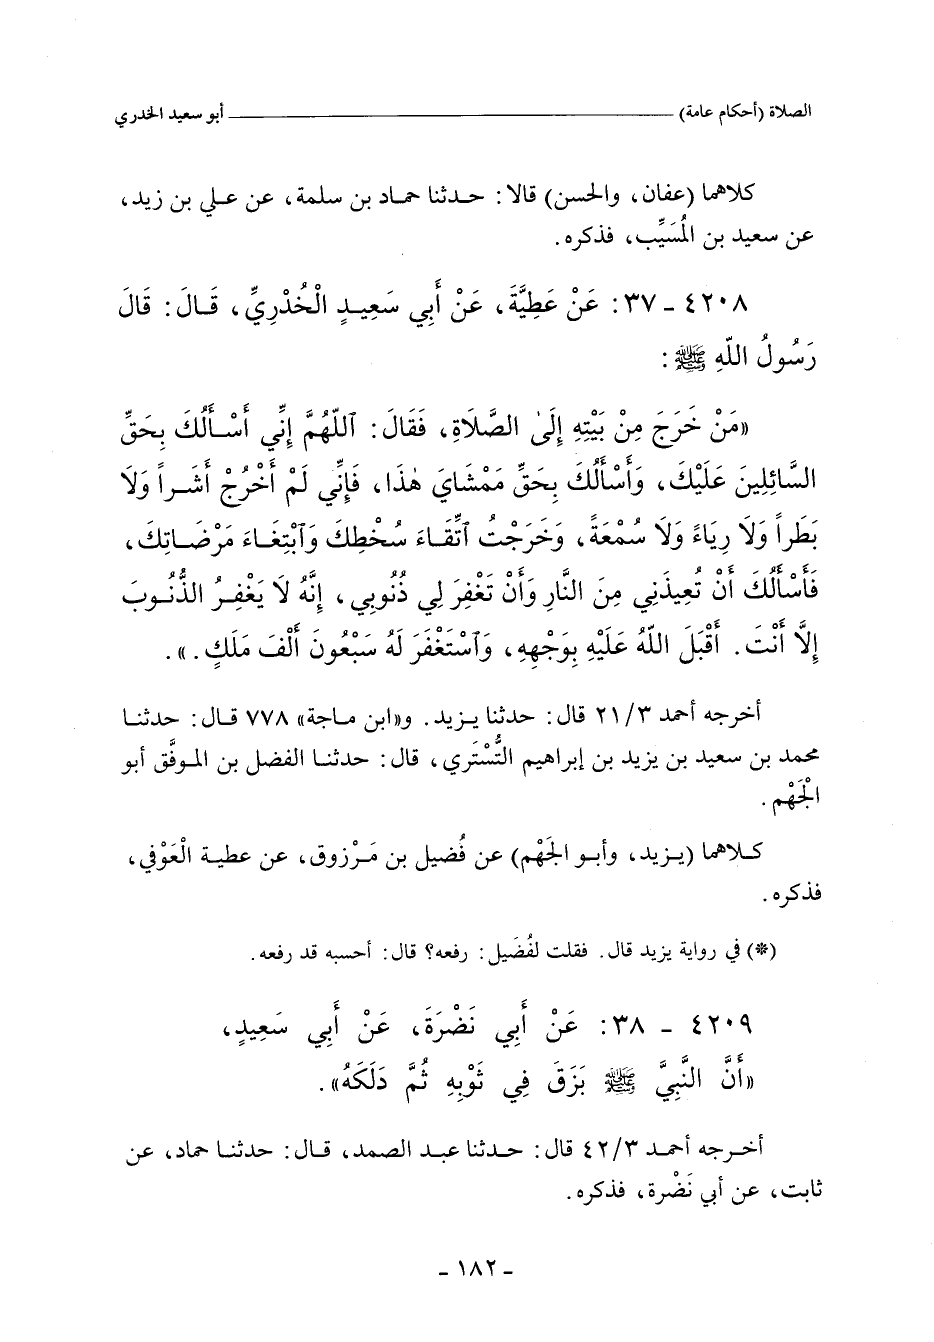 الصلاة (أحكام عامة) ــــــــــــــــ أبو سعيد الخدري
كلاهما (عفان، والحسن) قالا: حدثنا حماد بن سلمة، عن علي بن زيد،
عن سعيد بن المُسَيِّب، فذكره.
٤٢٠٨ - ٣٧: عَنْ عَطِيَّةَ، عَنْ أَبِي سَعِيدٍ الْخُدْرِيِّ، قَالَ: قَالَ
رَسُولُ اللّهِ ﷺ:
«مَنْ خَرَجَ مِنْ بَيْتِهِ إِلَىٰ الصَّلَاةِ، فَقَالَ: ٱللّهُمَّ إِنِّي أَسْأَلُكَ بِحَقِّ
السَّائِلِينَ عَلَيْكَ، وَأَسْأَلُكَ بِحَقِّ مَمْشَايَ هٰذَا، فَإِنِّي لَمْ أَخْرُجْ أَشَراً وَلَا
بَطَراً وَلَا رِيَاءً وَلَا سُمْعَةً، وَخَرَجْتُ ٱتِّقَاءَ سُخْطِكَ وَٱبْتِغَاءَ مَرْضَاتِكَ،
فَأَسْأَلُكَ أَنْ تُعِيذَنِي مِنَ النَّارِ وَأَنْ تَغْفِرَ لِي ذُنُوبِي، إِنَّهُ لَا يَغْفِرُ الذُّنُوبَ
إِلَّا أَنْتَ. أَقْبَلَ اللّهُ عَلَيْهِ بِوَجْهِهِ، وَٱسْتَغْفَرَ لَهُ سَبْعُونَ أَلْفَ مَلَكٍ.».
أخرجه أحمد ٢١/٣ قال: حدثنا يزيد. و«ابن ماجة» ٧٧٨ قال: حدثنا
محمد بن سعيد بن يزيد بن إبراهيم التُّسْتَري، قال: حدثنا الفضل بن الموفَّق أبو
الْجَهْم.
كلاهما (يزيد، وأبو الجَهْم) عن فُضيل بن مَرْزوق، عن عطية الْعَوْفي،
فذكره.
(*) في رواية يزيد قال. فقلت لفُضَيل: رفعه؟ قال: أحسبه قد رفعه.
٤٢٠٩ - ٣٨: عَنْ أَبِي نَضْرَةَ، عَنْ أَبِي سَعِيدٍ،
«أَنَّ النَّبِيَّ ﷺ بَزَقَ فِي ثَوْبِهِ ثُمَّ دَلَكَهُ».
أخرجه أحمد ٤٢/٣ قال: حدثنا عبد الصمد، قال: حدثنا حماد، عن
ثابت، عن أبي نَضْرة، فذكره.
- ١٨٢ -